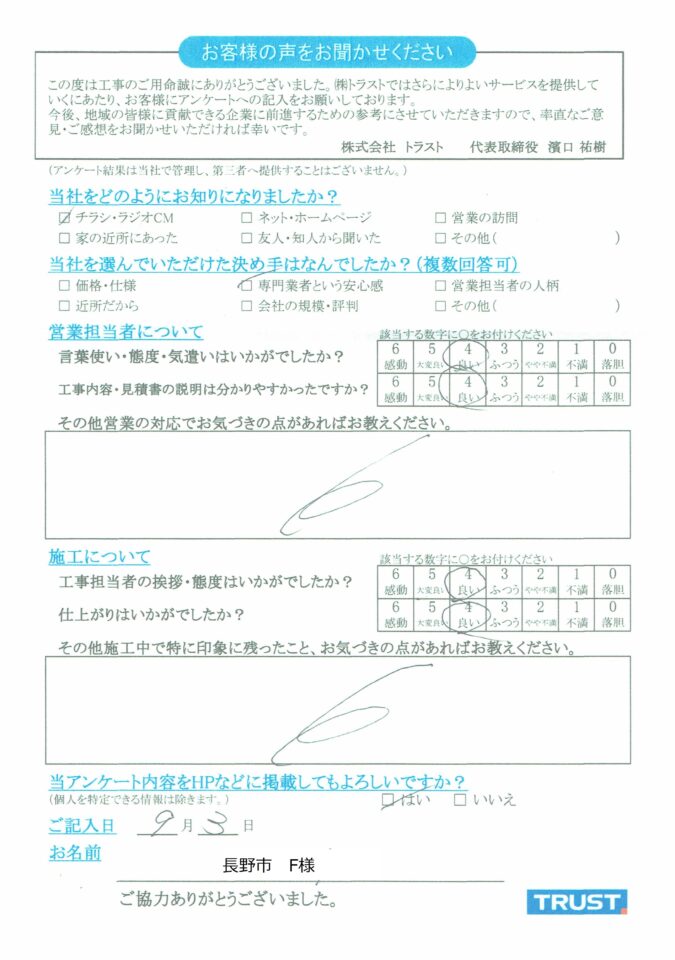 お客様の声をお聞かせください
この度は工事のご用命誠にありがとうございました。㈱トラストではさらによりよいサービスを提供して
いくにあたり、お客様にアンケートへの記入をお願いしております。
今後、地域の皆様に貢献できる企業に前進するための参考にさせていただきますので、率直なご意
見・ご感想をお聞かせいただければ幸いです。
株式会社 トラスト 代表取締役 濱口 祐樹
(アンケート結果は当社で管理し、第三者へ提供することはございません。)
当社をどのようにお知りになりましたか？
☑ チラシ・ラジオCM □ ネット・ホームページ □ 営業の訪問
□ 家の近所にあった □ 友人・知人から聞いた □ その他( )
当社を選んでいただけた決め手はなんでしたか？(複数回答可)
□ 価格・仕様 ☑ 専門業者という安心感 □ 営業担当者の人柄
□ 近所だから □ 会社の規模・評判 □ その他( )
営業担当者について 該当する数字に○をお付けください
言葉使い・態度・気遣いはいかがでしたか？ 6 5 4 3 2 1 0
感動 大変良い 良い ふつう やや不満 不満 落胆
工事内容・見積書の説明は分かりやすかったですか？ 6 5 4 3 2 1 0
感動 大変良い 良い ふつう やや不満 不満 落胆
その他営業の対応でお気づきの点があればお教えください。
施工について 該当する数字に○をお付けください
工事担当者の挨拶・態度はいかがでしたか？ 6 5 4 3 2 1 0
感動 大変良い 良い ふつう やや不満 不満 落胆
仕上がりはいかがでしたか？ 6 5 4 3 2 1 0
感動 大変良い 良い ふつう やや不満 不満 落胆
その他施工中で特に印象に残ったこと、お気づきの点があればお教えください。
当アンケート内容をHPなどに掲載してもよろしいですか？
(個人を特定できる情報は除きます。) ☑ はい □ いいえ
ご記入日 9 月 3 日
お名前
長野市 F様
ご協力ありがとうございました。
TRUST.